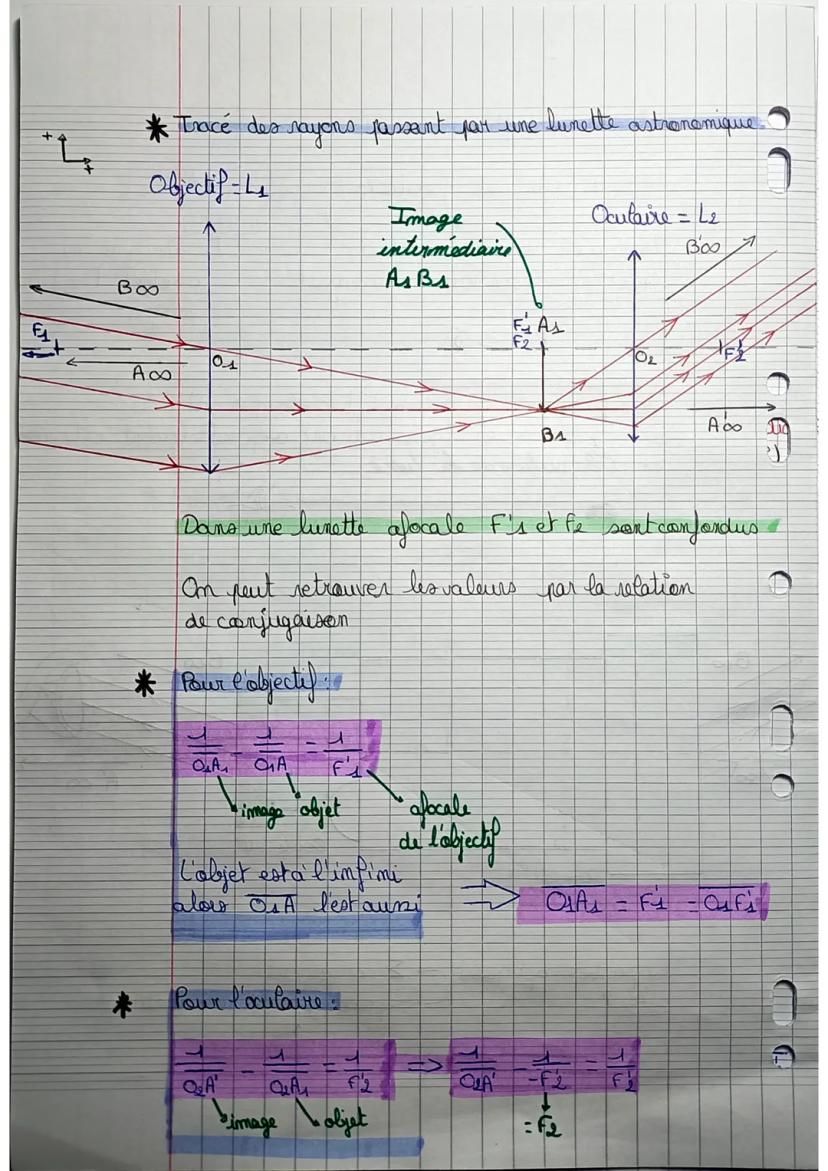 * Tracé des rayons passant par une lunette astronomique
+
+
Objectif = L1
Image
intermédiaire
A1 B1
Oculaire = L2
B'∞
B∞
F1
A∞
O1
F'1 A1
F2
B1
O2
F'2
A'∞
Dans une lunette afocale F'1 et F2 sont confondus
On peut retrouver les valeurs par la relation
de conjugaison
* Pour l'objectif :
1/O1A1 - 1/O1A = 1/F'1
image objet
afocale
de l'objectif
L'objet est à l'infini
alors O1A l'est aussi ⇒ O1A1 = F'1 = O1F'1
* Pour l'oculaire :
1/O2A' - 1/O2A1 = 1/F'2 => 1/O2A' - 1/-F'2 = 1/F'2
image objet
= F2